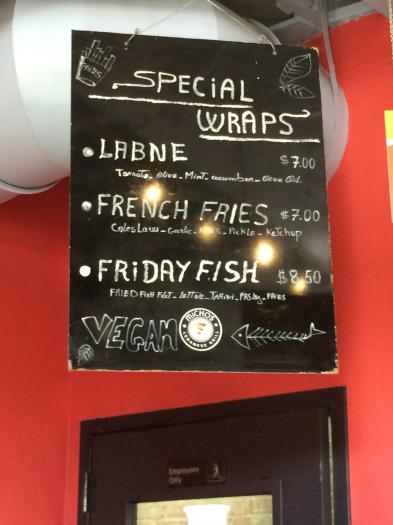 FRIES
SPECIAL
WRAPS
LABNE $7.00
Tomato_ olive_ Mint_ cucumber_ Olive Oil
FRENCH FRIES $7.00
Coleslaw_ Garlic_ _ Pickle_ Ketchup
FRIDAY FISH $8.50
FRIED Fish Filet_ Lettuce_ Tahini_ PARSley_ FRIES
VEGAN
MICHOS
LEBANESE GRILL
Employees
Only